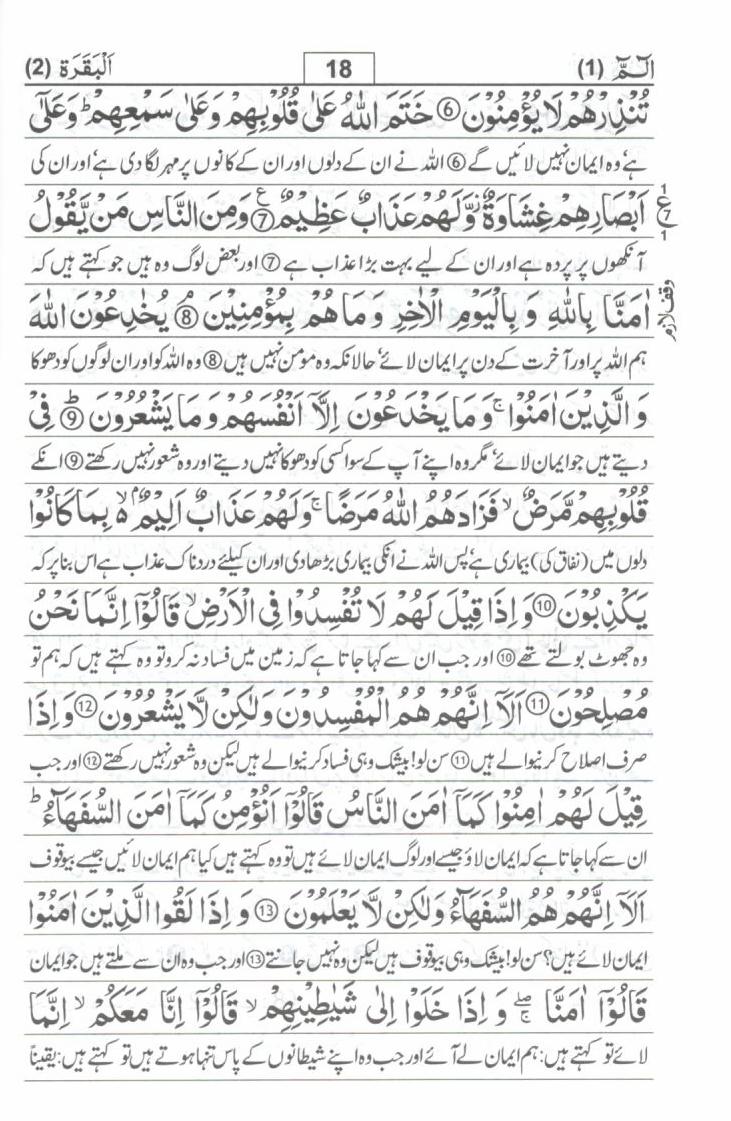 الٓمّٓ (1) 18 اَلْبَقَرَة (2)
تُنْذِرْهُمْ لَا يُؤْمِنُوْنَ ⑥ خَتَمَ اللّٰهُ عَلٰى قُلُوْبِهِمْ وَعَلٰى سَمْعِهِمْ ؕ وَعَلٰٓى
ہے، وہ ایمان نہیں لائیں گے ⑥ اللہ نے ان کے دلوں اور ان کے کانوں پر مہر لگا دی ہے، اور ان کی
اَبْصَارِهِمْ غِشَاوَةٌ ؗ وَّلَهُمْ عَذَابٌ عَظِيْمٌ ⑦ ع وَمِنَ النَّاسِ مَنْ يَّقُوْلُ
1 ع 7 1
آنکھوں پر پردہ ہے اور ان کے لیے بہت بڑا عذاب ہے ⑦ اور بعض لوگ وہ ہیں جو کہتے ہیں کہ
اٰمَنَّا بِاللّٰهِ وَ بِالْيَوْمِ الْاٰخِرِ وَ مَا هُمْ بِمُؤْمِنِيْنَ ⑧ ۘ يُخٰدِعُوْنَ اللّٰهَ
وقف لازم
ہم اللہ پر اور آخرت کے دن پر ایمان لائے، حالانکہ وہ مومن نہیں ہیں ⑧ وہ اللہ کو اور ان لوگوں کو دھوکا
وَ الَّذِيْنَ اٰمَنُوْا ۚ وَ مَا يَخْدَعُوْنَ اِلَّاۤ اَنْفُسَهُمْ وَ مَا يَشْعُرُوْنَ ⑨ ؕ فِىْ
دیتے ہیں جو ایمان لائے، مگر وہ اپنے آپ کے سوا کسی کو دھوکا نہیں دیتے اور وہ شعور نہیں رکھتے ⑨ انکے
قُلُوْبِهِمْ مَّرَضٌ ۙ فَزَادَهُمُ اللّٰهُ مَرَضًا ۚ وَ لَهُمْ عَذَابٌ اَلِيْمٌۢ ۬ۙ بِمَا كَانُوْا
دلوں میں (نفاق کی) بیماری ہے، پس اللہ نے انکی بیماری بڑھا دی اور ان کیلئے دردناک عذاب ہے اس بنا پر کہ
يَكْذِبُوْنَ ⑩ وَ اِذَا قِيْلَ لَهُمْ لَا تُفْسِدُوْا فِى الْاَرْضِ ۙ قَالُوْۤا اِنَّمَا نَحْنُ
وہ جھوٹ بولتے تھے ⑩ اور جب ان سے کہا جاتا ہے کہ زمین میں فساد نہ کرو تو وہ کہتے ہیں کہ ہم تو
مُصْلِحُوْنَ ⑪ اَلَاۤ اِنَّهُمْ هُمُ الْمُفْسِدُوْنَ وَلٰكِنْ لَّا يَشْعُرُوْنَ ⑫ وَ اِذَا
صرف اصلاح کرنیوالے ہیں ⑪ سن لو! بیشک وہی فساد کرنیوالے ہیں لیکن وہ شعور نہیں رکھتے ⑫ اور جب
قِيْلَ لَهُمْ اٰمِنُوْا كَمَاۤ اٰمَنَ النَّاسُ قَالُوْۤا اَنُؤْمِنُ كَمَاۤ اٰمَنَ السُّفَهَآءُ ؕ
ان سے کہا جاتا ہے کہ ایمان لاؤ جیسے اور لوگ ایمان لائے ہیں تو وہ کہتے ہیں کیا ہم ایمان لائیں جیسے بیوقوف
اَلَاۤ اِنَّهُمْ هُمُ السُّفَهَآءُ وَلٰكِنْ لَّا يَعْلَمُوْنَ ⑬ وَ اِذَا لَقُوا الَّذِيْنَ اٰمَنُوْا
ایمان لائے ہیں؟ سن لو! بیشک وہی بیوقوف ہیں لیکن وہ نہیں جانتے ⑬ اور جب وہ ان سے ملتے ہیں جو ایمان
قَالُوْۤا اٰمَنَّا ۖۚ وَ اِذَا خَلَوْا اِلٰى شَيٰطِيْنِهِمْ ۙ قَالُوْۤا اِنَّا مَعَكُمْ ۙ اِنَّمَا
لائے تو کہتے ہیں: ہم ایمان لے آئے اور جب وہ اپنے شیطانوں کے پاس تنہا ہوتے ہیں تو کہتے ہیں: یقیناً